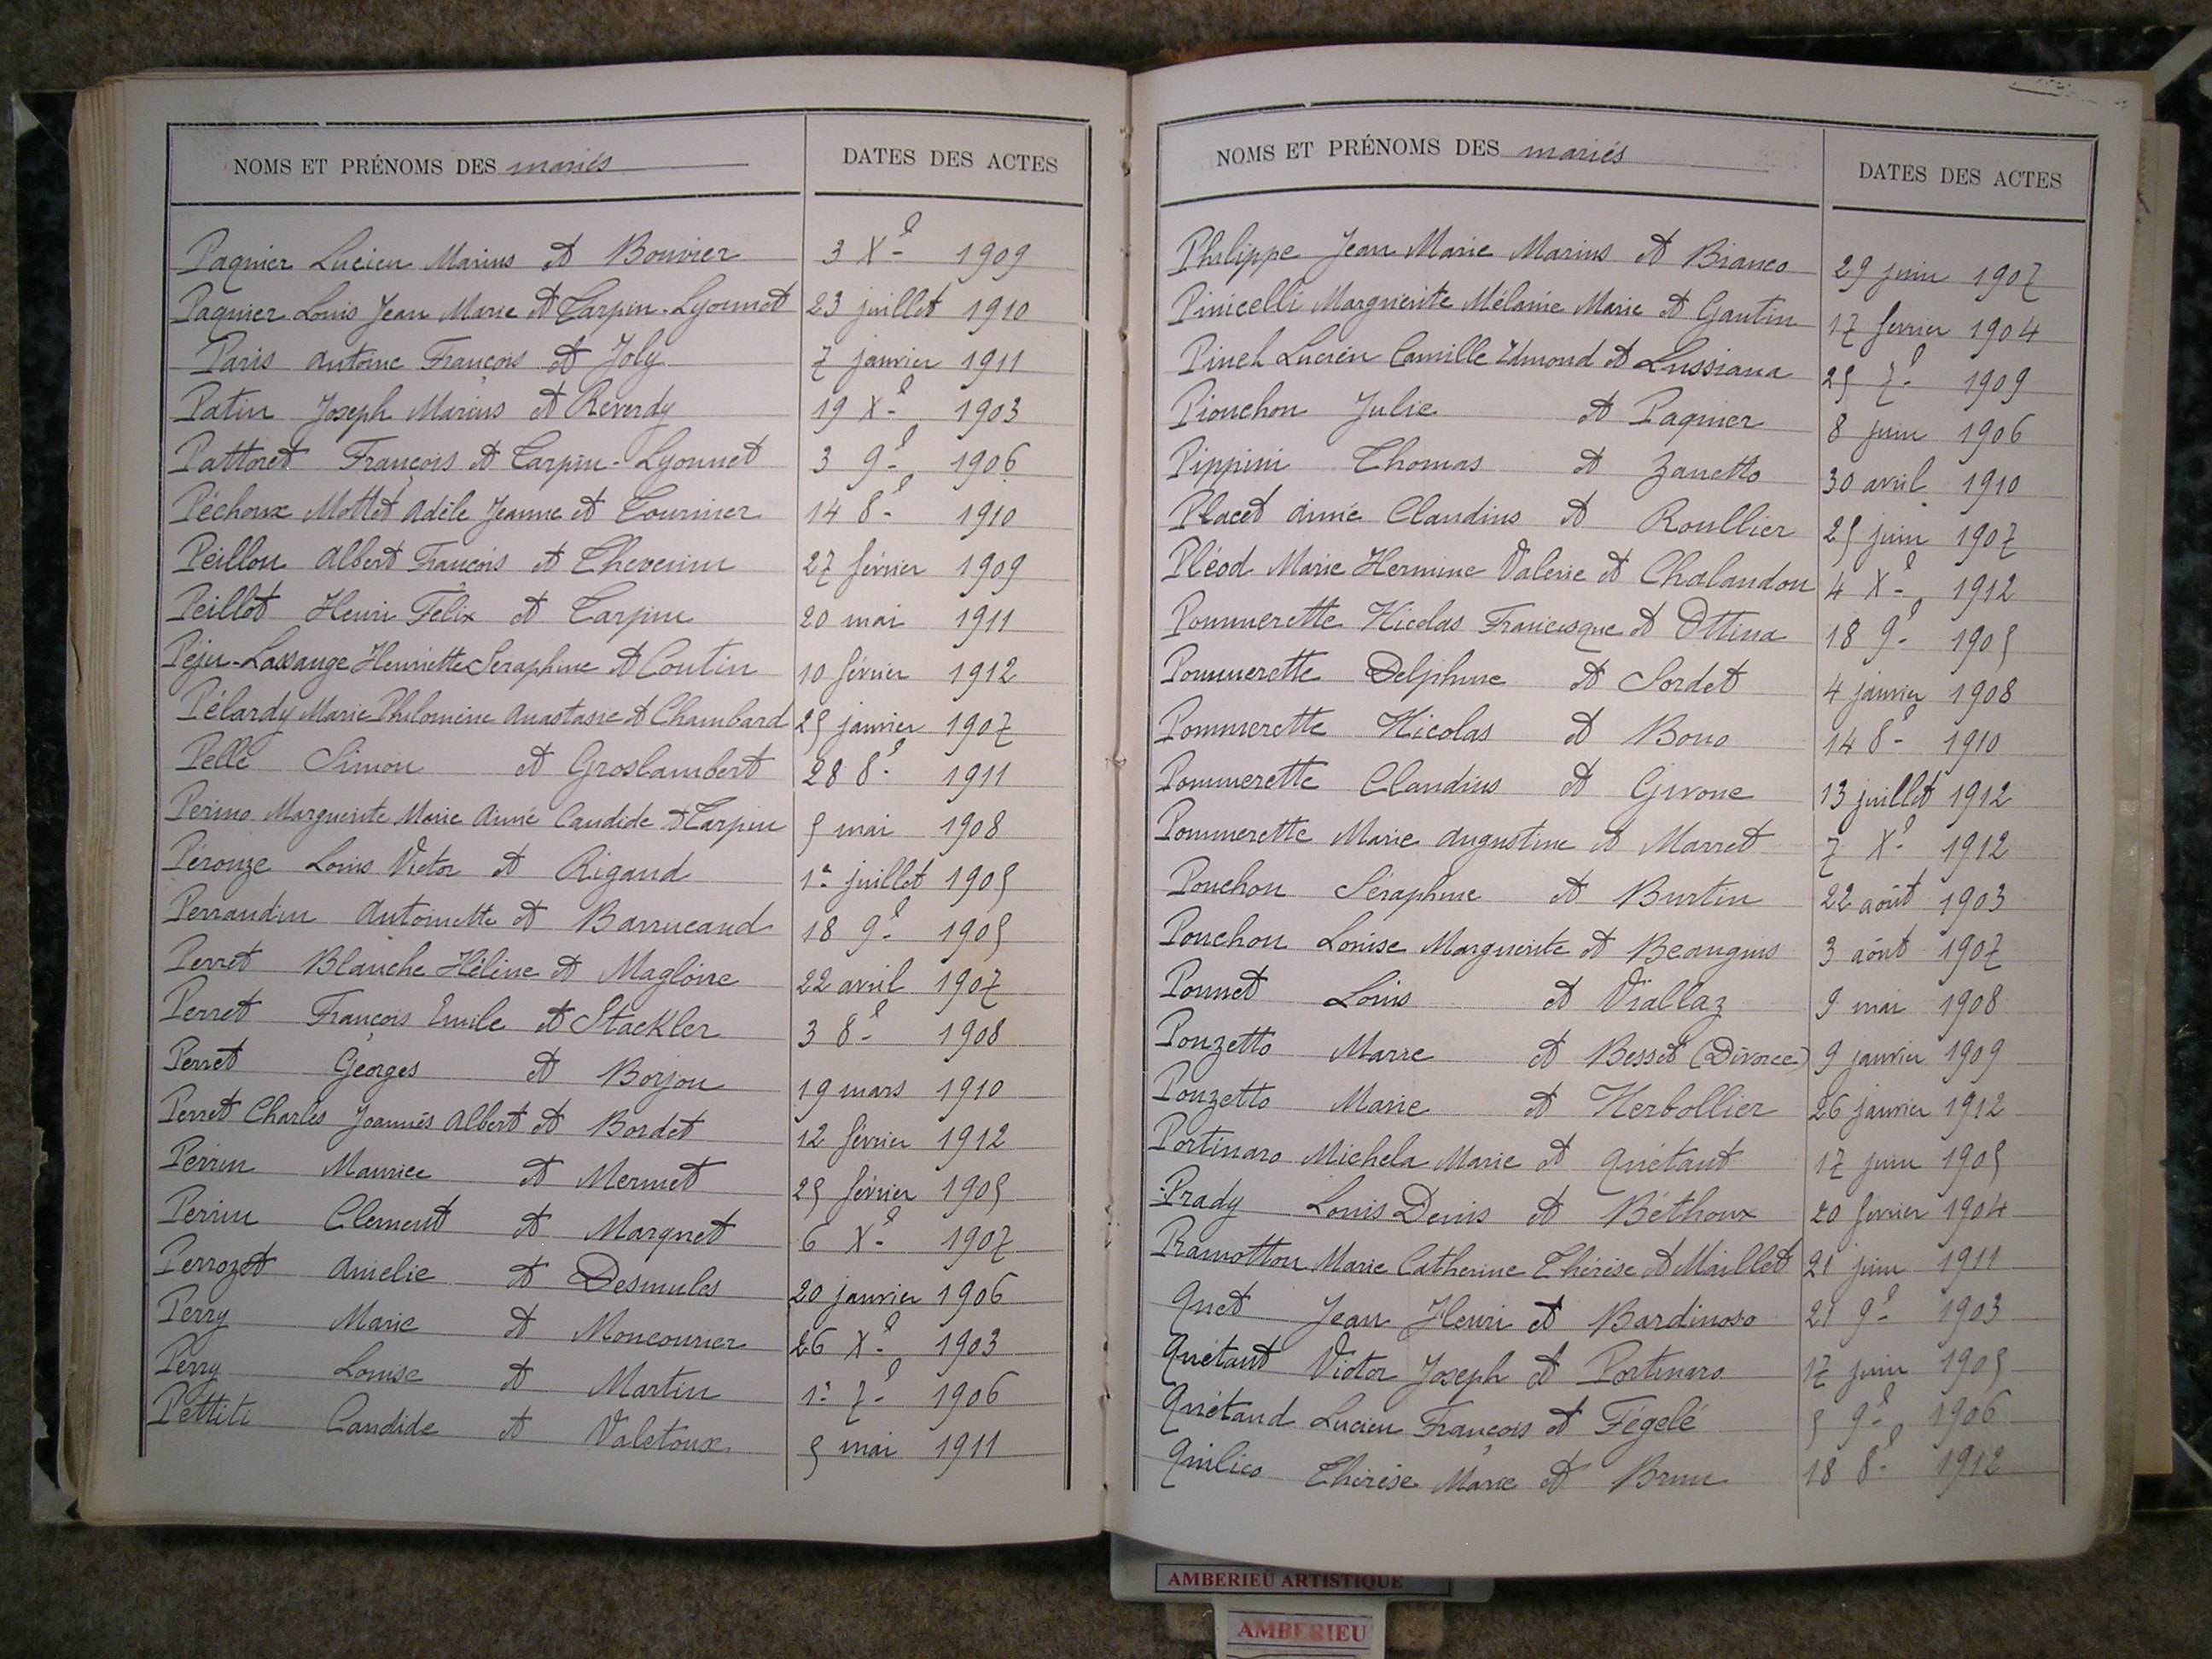 NOMS ET PRÉNOMS DES mariés DATES DES ACTES
Pagnier Lucien Marius et Bouvier 3 Xe 1909
Pagnier Louis Jean Marie et Carpin-Lyonnet 23 juillet 1910
Paris Antoine François et Joly 7 janvier 1911
Patin Joseph Marius et Reverdy 19 Xe 1903
Pattoret François et Carpin-Lyonnet 3 9e 1906
Péchoux Mottet Adèle Jeanne et Tournier 14 8e 1910
Peillon Albert François et Thevenin 27 février 1909
Peillot Henri Félix et Carpin 20 mai 1911
Peju-Lassauge Henriette Seraphine et Coutin 10 février 1912
Pélardy Marie Philomène Anastasie et Chambard 25 janvier 1907
Pellé Simon et Groslambert 28 8e 1911
Perino Marguerite Marie Aimé Candide et Carpin 5 mai 1908
Péronze Louis Victor et Rigaud 1er juillet 1905
Perraudin Antoinette et Barrucand 18 9e 1905
Perret Blanche Hélène et Magloire 22 avril 1907
Perret François Emile et Stackler 3 8e 1908
Perret Georges et Borjon 19 mars 1910
Perret Charles Joannès Albert et Bordet 12 février 1912
Perrin Maurice et Mermet 25 février 1905
Perrin Clement et Marguet 6 Xe 1907
Perrozet Amelie et Desmules 20 janvier 1906
Perry Marie et Moncourier 26 Xe 1903
Perry Louise et Martin 1er 7e 1906
Pettiti Candide et Valetoux 5 mai 1911
NOMS ET PRÉNOMS DES mariés DATES DES ACTES
Philippe Jean Marie Marius et Bianco 29 juin 1907
Pinicelli Marguerite Mélanie Marie et Gautin 17 fevrier 1904
Pinel Lucien Camille Edmond et Lussiana 25 7e 1909
Piouchon Julie et Pagnier 8 juin 1906
Pippini Thomas et Zanetto 30 avril 1910
Placet Aimé Claudius et Roullier 25 juin 1907
Pléod Marie Hermine Valerie et Chalandon 4 Xe 1912
Pommerette Nicolas Francisque et Ottina 18 9e 1905
Pommerette Delphine et Sordet 4 janvier 1908
Pommerette Nicolas et Bono 14 8e 1910
Pommerette Claudius et Givone 13 juillet 1912
Pommerette Marie Augustine et Marret 7 Xe 1912
Ponchon Séraphine et Burtin 22 août 1903
Ponchon Louise Marguerite et Beauguis 3 août 1907
Ponnet Louis et Viallaz 9 mai 1908
Ponzetto Marie et Besset (Divorce) 9 janvier 1909
Ponzetto Marie et Herbollier 26 janvier 1912
Portinaro Michela Marie et Quétant 17 juin 1905
Prady Louis Denis et Béthoux 20 fevrier 1904
Pramotton Marie Catherine Thérèse et Maillet 21 juin 1911
Quet Jean Henri et Bardinoso 21 9e 1903
Quétant Victor Joseph et Portinaro 17 juin 1905
Quétand Lucien François et Fégelé 5 9e 1906
Quilico Thérèse Marie et Brun 18 8e 1912
AMBERIEU ARTISTIQUE
AMBERIEU